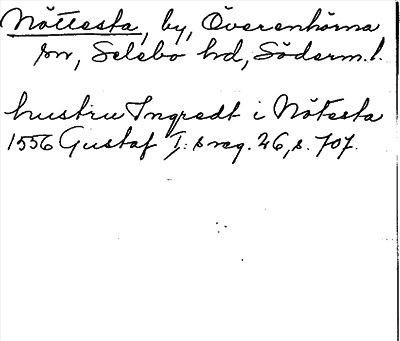 Nöttesta, by, Överenhörna
sn, Selebo hd, Söderm. l.
hustru Ingredt i Nötesta
1556 Gustaf I:s reg. 26, s. 707.